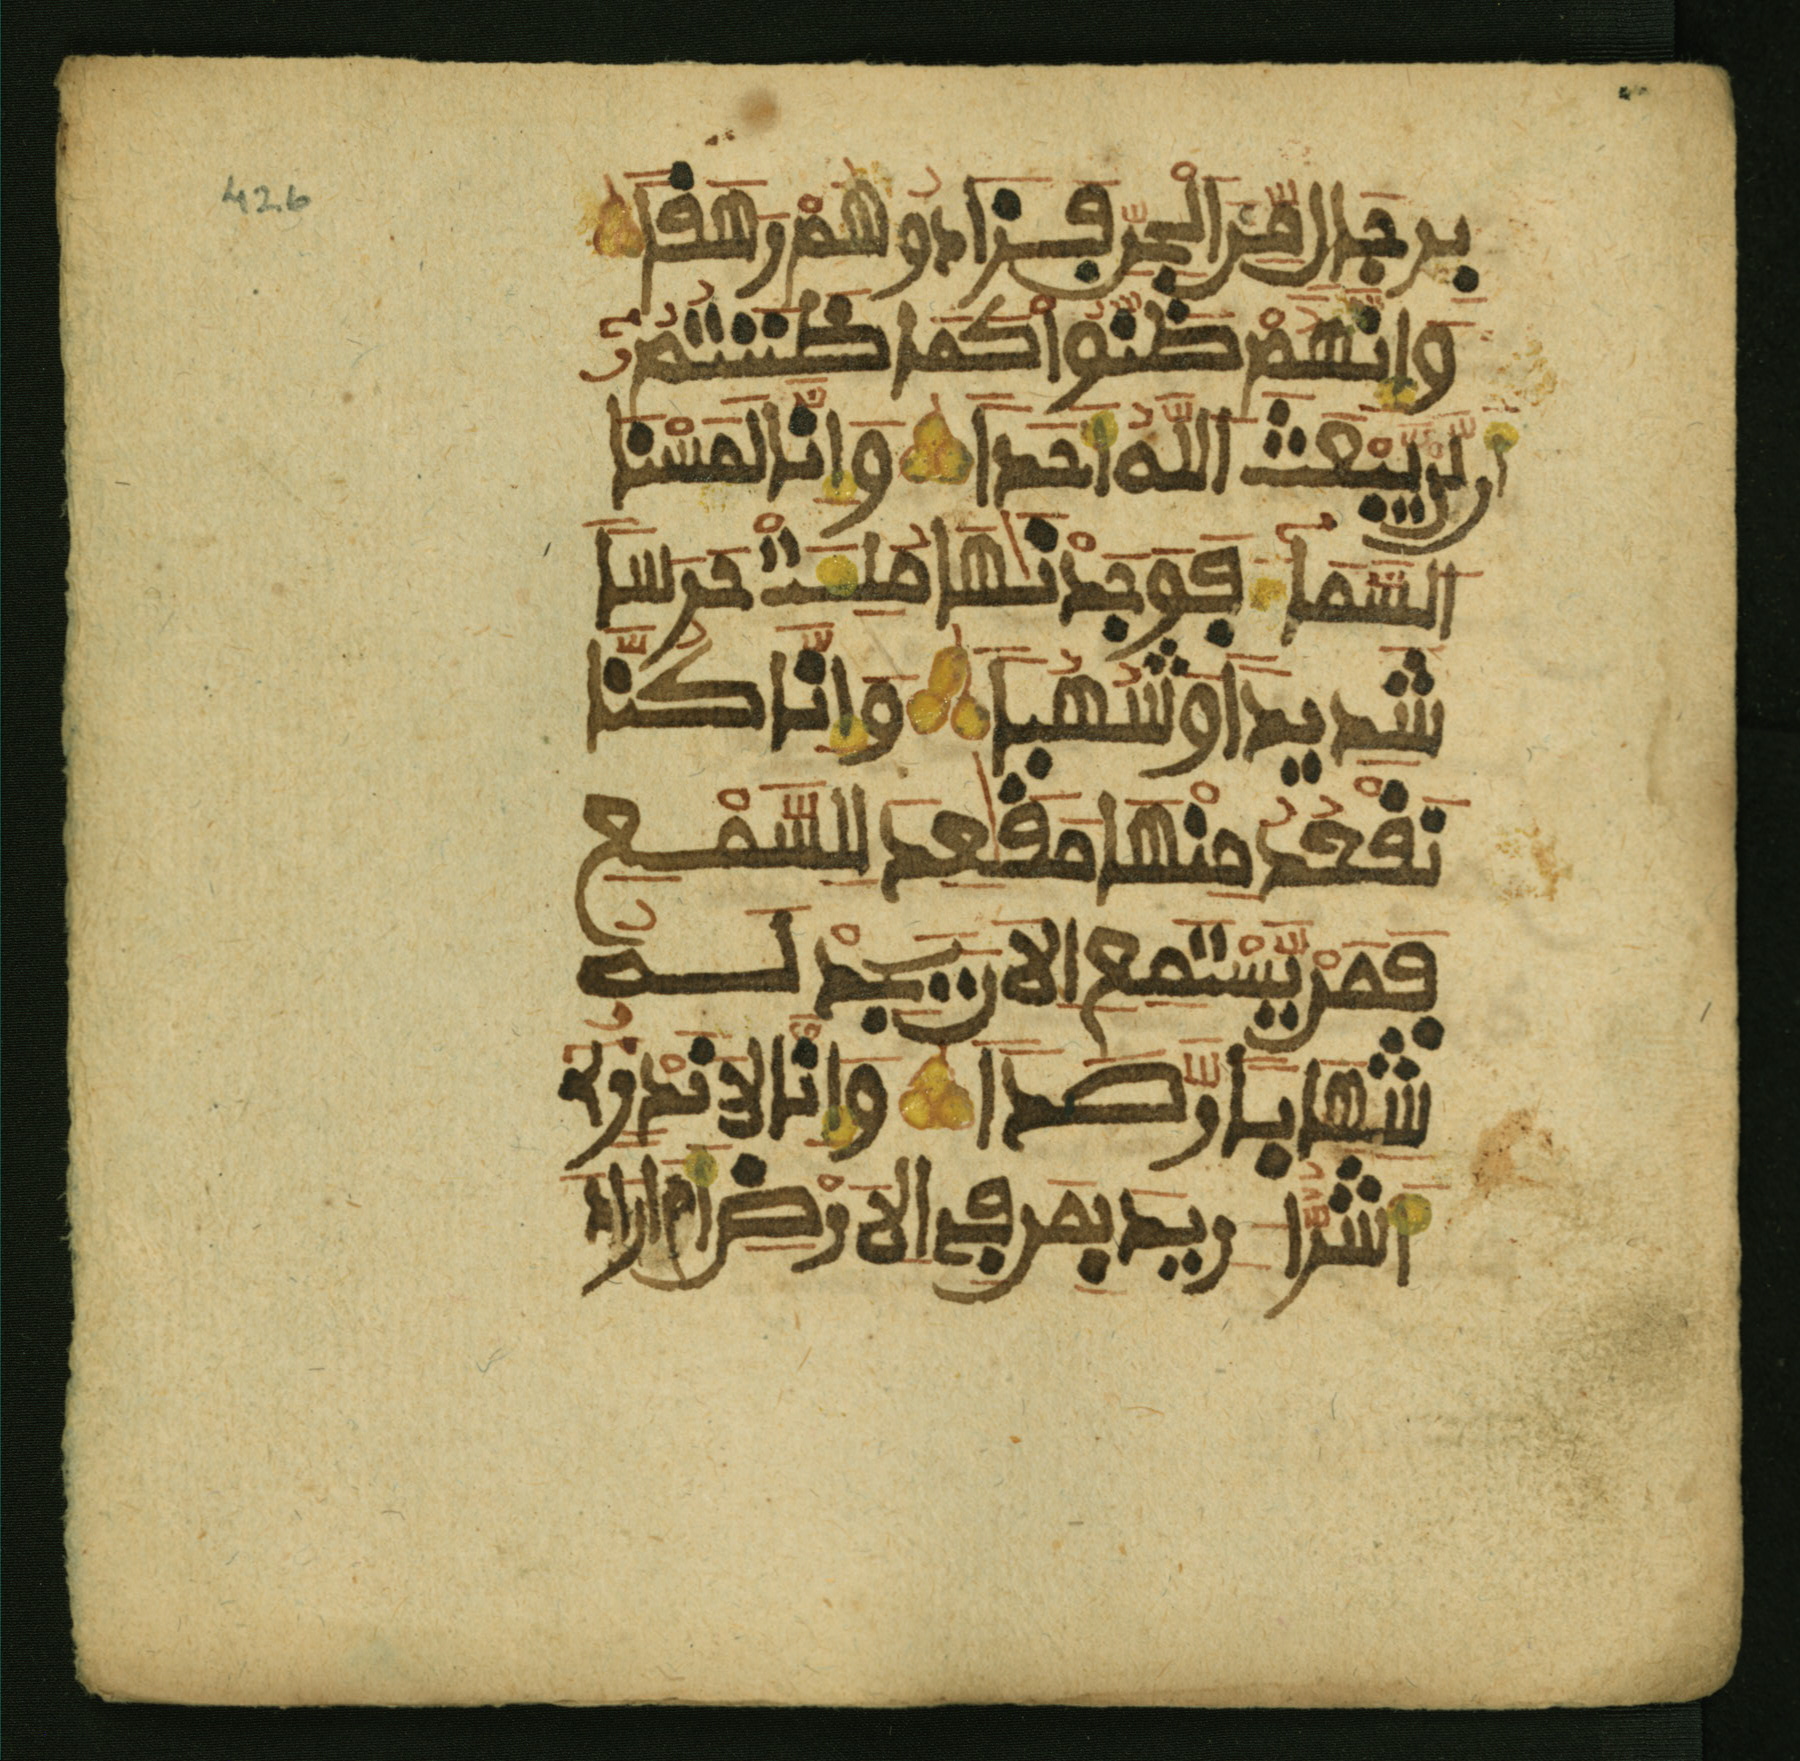 426
بِرِجَالٍ مِّنَ الْجِنِّ فَزَادُوهُمْ رَهَقًا
وَأَنَّهُمْ ظَنُّواْ كَمَا ظَنَنتُمُ
أَن لَّن يَّبْعَثَ اللَّهُ أَحَدًا وَإِنَّا لَمَسْنَا
السَّمَآءَ فَوَجَدْنَٰهَا مُلِئَتْ حَرَسًا
شَدِيدًا وَشُهُبًا وَإِنَّا كُنَّا
نَقْعُدُ مِنْهَا مَقَٰعِدَ لِلسَّمْعِ
فَمَنْ يَّسْتَمِعِ الَانَ يَجِدْ لَهُ
شِهَابًا رَّصَدًا وَإِنَّا لَا نَدْرِي
أَشَرٌّ ارِيدَ بِمَن فِي الَارْضِ أَمَ ارَادَ